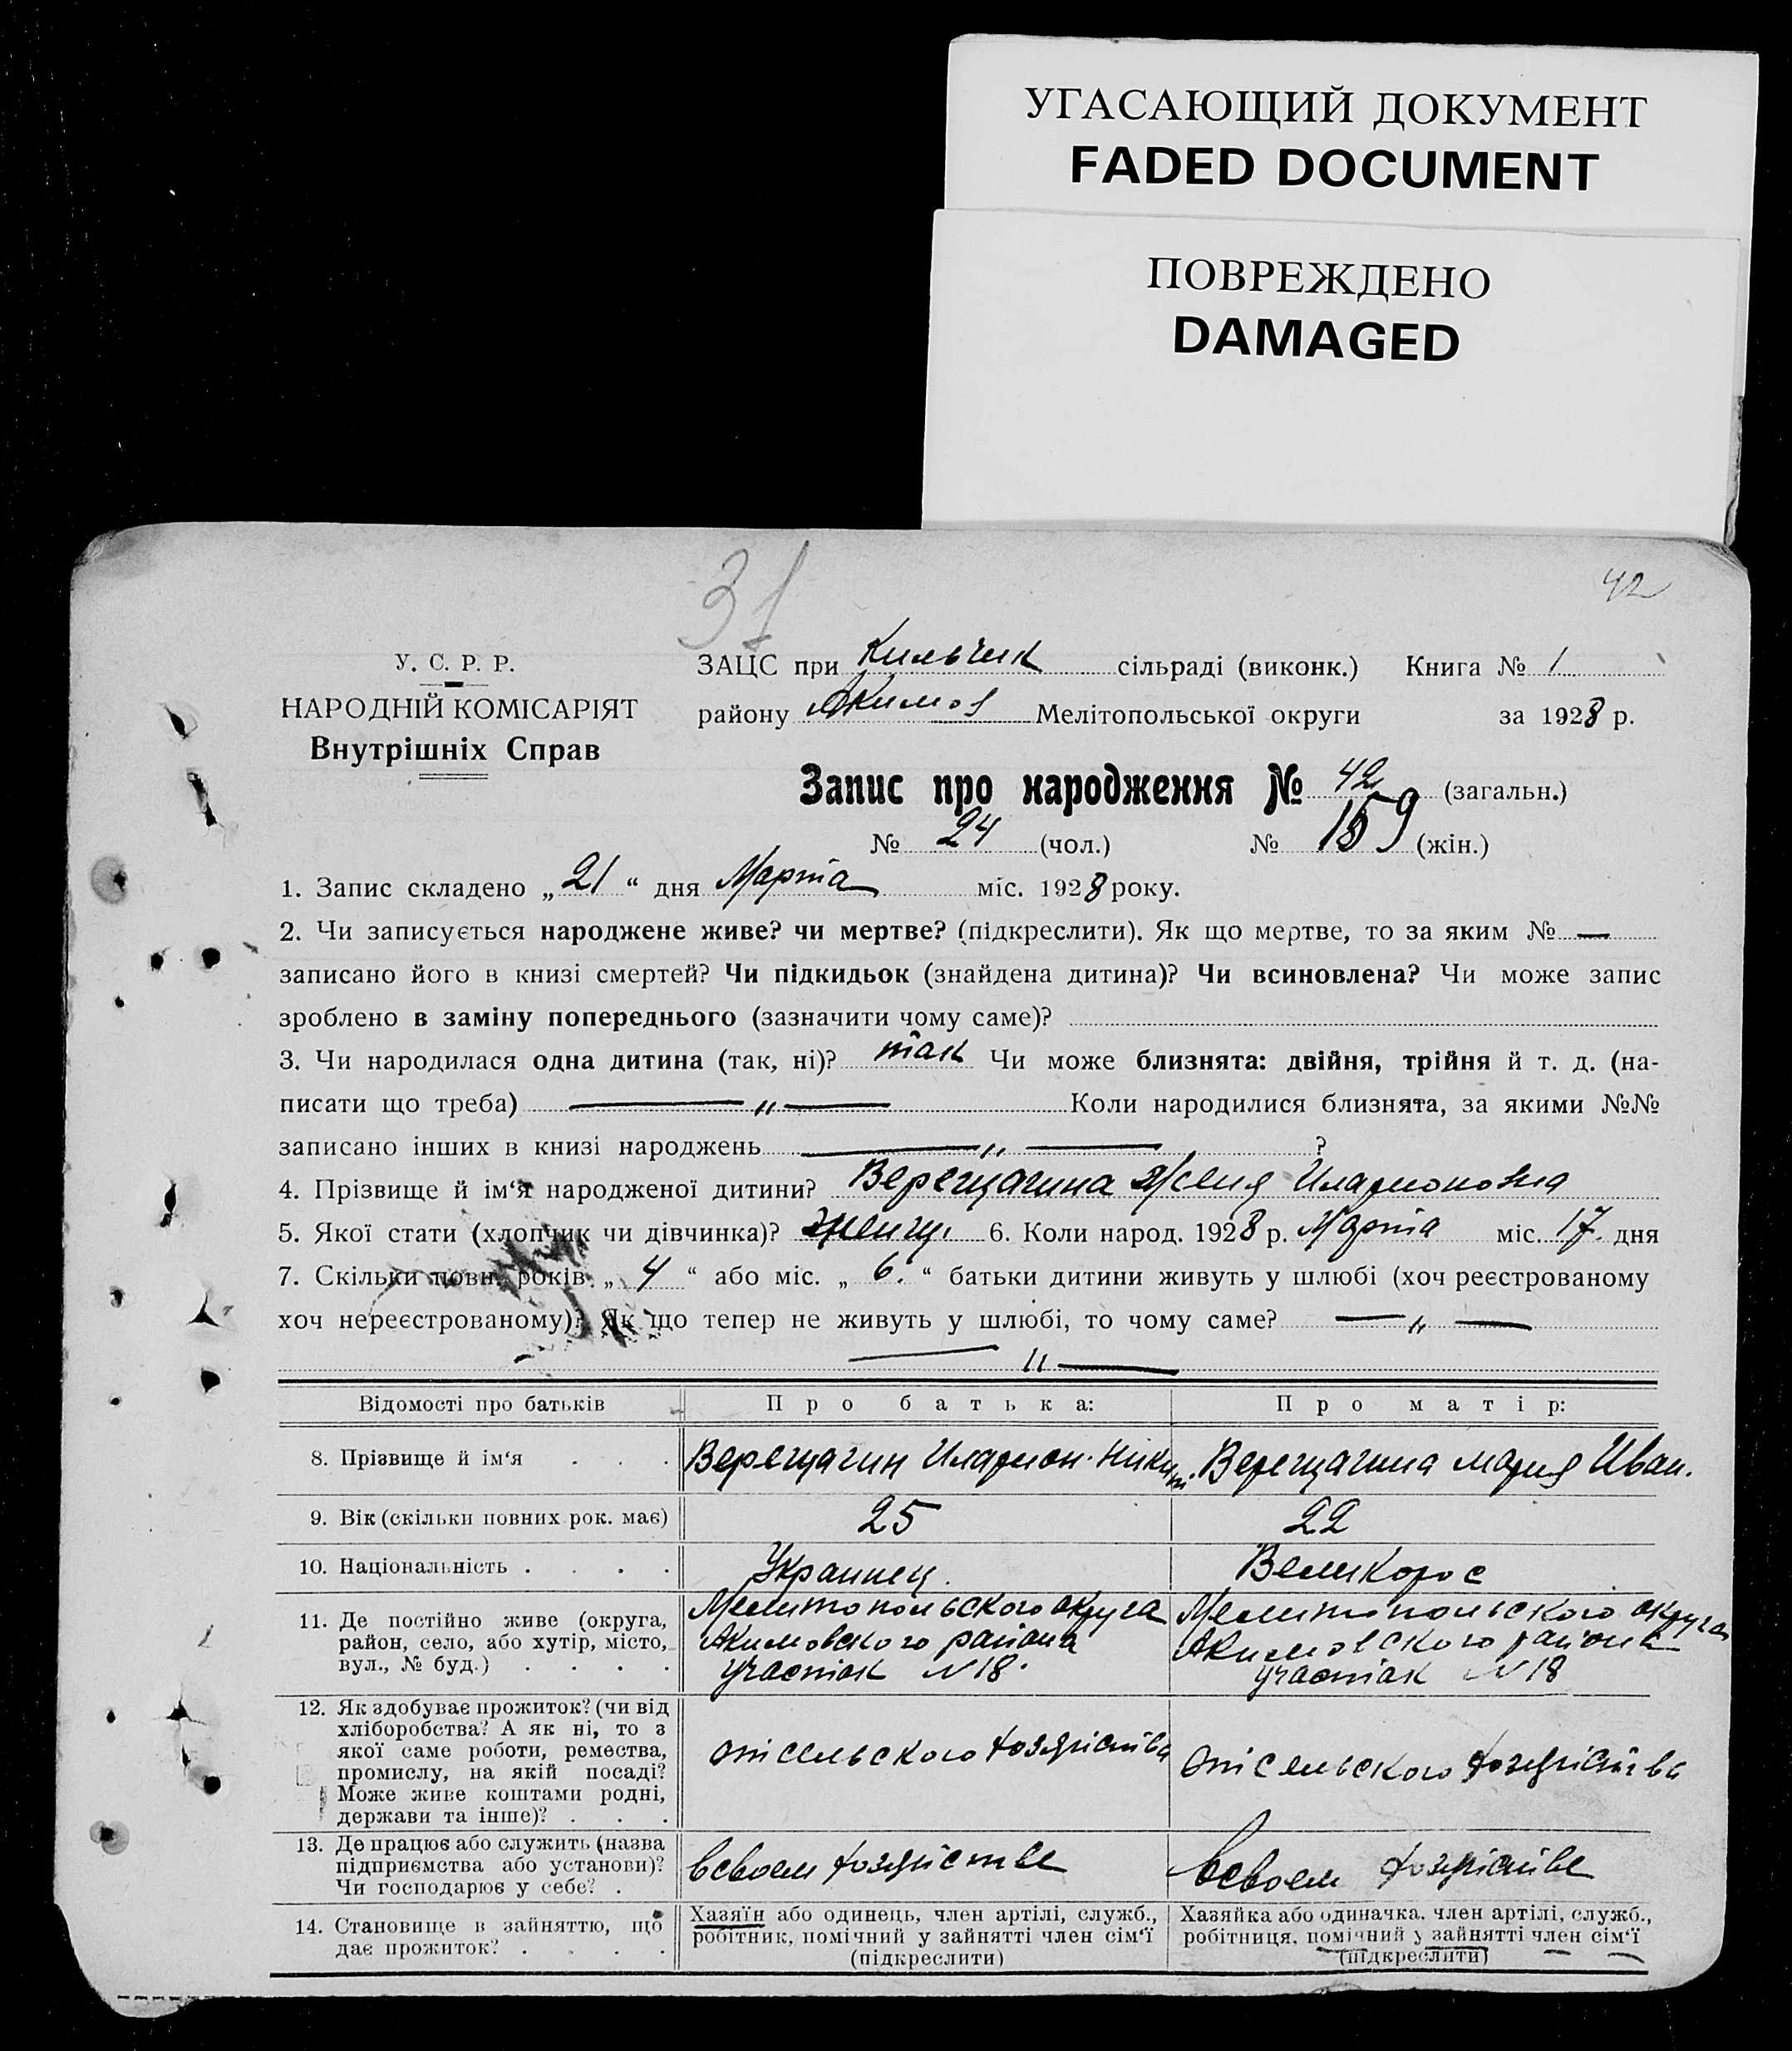 УГАСАЮЩИЙ ДОКУМЕНТ
FADED DOCUMENT
ПОВРЕЖДЕНО
DAMAGED
31
42
У. С. Р. Р.
НАРОДНІЙ КОМІСАРІЯТ
Внутрішніх Справ
ЗАЦС при Кильчик сільраді (виконк.) Книга № 1
району Акимов Мелітопольської округи за 1928 р.
Запис про народження № 42 (загальн.)
№ 24 (чол.) № (жін.)
1. Запис складено „ 21 “ дня Марта міс. 1928 року.
2. Чи записується народжене живе? чи мертве? (підкреслити). Як що мертве, то за яким № —
записано його в книзі смертей? Чи підкидьок (знайдена дитина)? Чи всиновлена? Чи може запис
зроблено в заміну попереднього (зазначити чому саме)?
3. Чи народилася одна дитина (так, ні)? так Чи може близнята: двійня, трійня й т. д. (на-
писати що треба) — „ — Коли народилися близнята, за якими №№
записано інших в книзі народжень — „ — ?
4. Прізвище й ім‘я народженої дитини? Верещагина Иларионовна
5. Якої стати (хлопчик чи дівчинка)? женщ. 6. Коли народ. 1928 р. Марта міс. 17. дня
7. Скільки повн. років „ 4 “ або міс. „ 6. “ батьки дитини живуть у шлюбі (хоч реєстрованому
хоч нереєстрованому)? Як що тепер не живуть у шлюбі, то чому саме? — „ —
— „ —
Відомості про батьків Про батька: Про матір:
8. Прізвище й ім‘я . . . Верещагин Иларион Никит. Верещагина Мария Иван.
9. Вік (скільки повних рок. має) 25 22
10. Національність . . . . Украинец. Великорос
11. Де постійно живе (округа, Мелитопольского округа Мелитопольского округа
район, село, або хутір, місто, Акимовского района Акимовского района
вул., № буд.) . . . . участок N 18. участок N 18
12. Як здобуває прожиток? (чи від
хліборобства? А як ні, то з
якої саме роботи, ремества, от сельского хозяйства от сельского хозяйства
промислу, на якій посаді?
Може живе коштами родні,
держави та інше)? . . .
13. Де працює або служить (назва
підприємства або установи)? в своем хозяйстве в своем хозяйстве
Чи господарює у себе? .
14. Становище в зайняттю, що Хазяїн або одинець, член артілі, служб., Хазяйка або одиначка, член артілі, служб.,
дає прожиток? . . . . робітник, помічний у зайнятті член сім‘ї робітниця, помічний у зайнятті член сім‘ї
(підкреслити) (підкреслити)